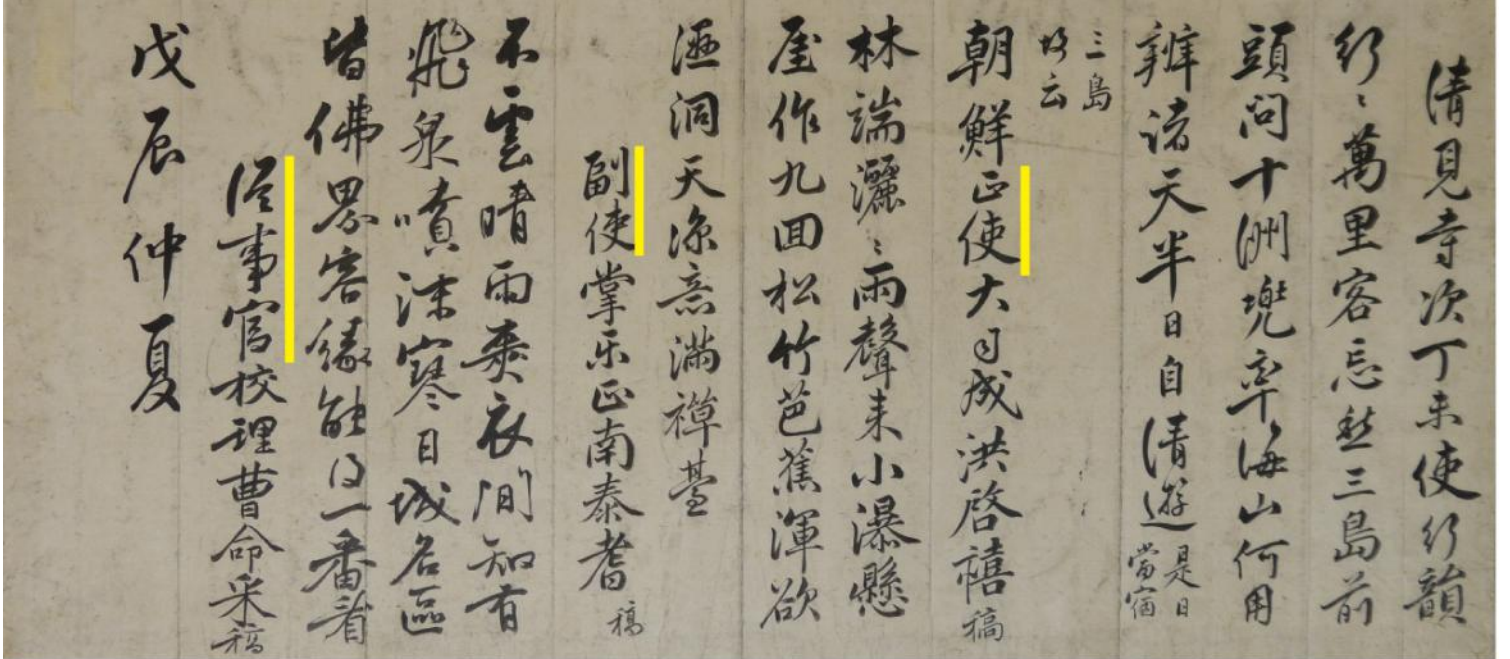 清見寺次丁未使行韻
行〻萬里客忘愁三島前
頭問十洲兜率海山何用
辨諸天半日自清遊是日當宿
三島故云
朝鮮正使大司成洪啓禧稿
林端灑〻雨聲来小瀑懸
厓作九回松竹芭蕉渾欲
湿洞天凉意滿禅臺
副使掌乐正南泰耆稿
不雲晴雨爽衣間知有
飛泉噴沫寒日域名區
皆佛界客緣能得一番看
從事官校理曹命采稿
戊辰仲夏